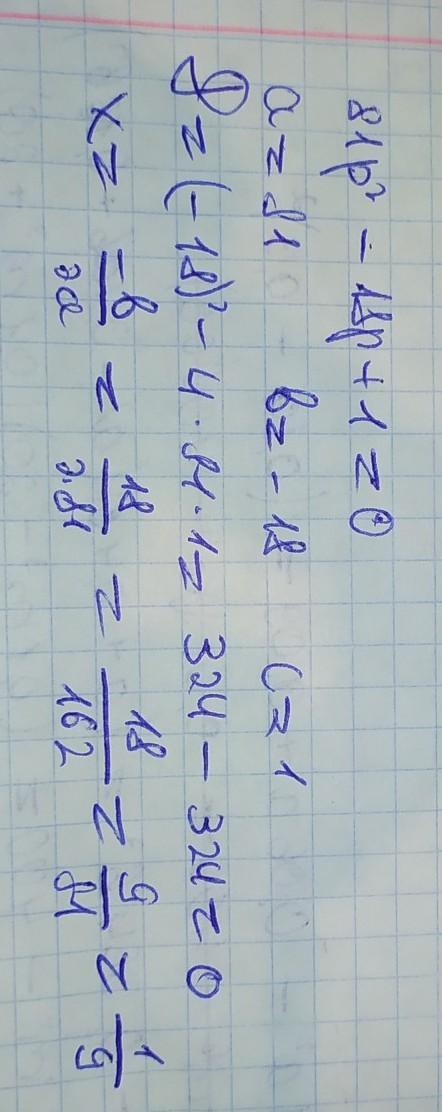 81p² - 18p + 1 = 0
a = 81 b = -18 c = 1
D = (-18)² - 4 · 81 · 1 = 324 - 324 = 0
x = -b/2a = 18/2·81 = 18/162 = 9/81 = 1/9